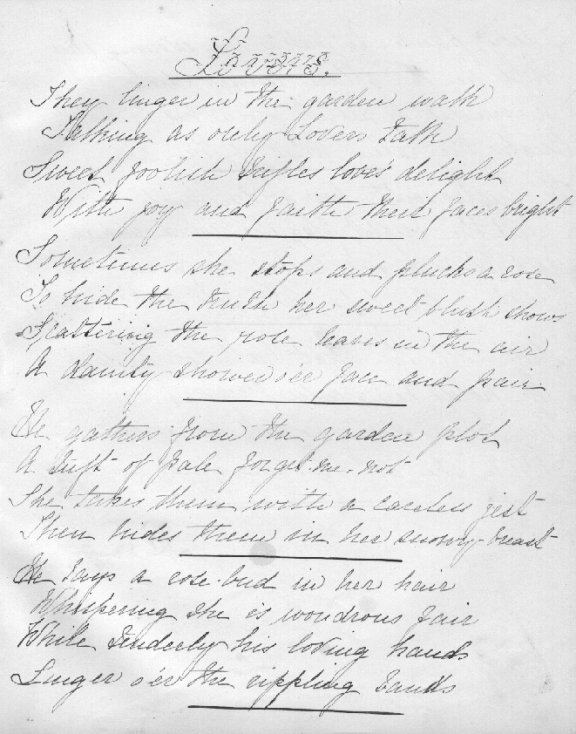 Lovers.
They linger in the garden walk
Talking as only Lovers talk
Sweet foolish trifles love's delight
With joy and faith their faces bright
Sometimes she stops and plucks a rose
To hide the truth her sweet blush shows
Scattering the rose leaves in the air
A dainty shower o'er face and hair
He gathers from the garden plot
A tuft of pale forget-me-not
She takes them with a careless jest
Then hides them in her snowy breast
He lays a rose-bud in her hair
Whispering she is wondrous fair
While tenderly his loving hands
Linger o'er the rippling bands